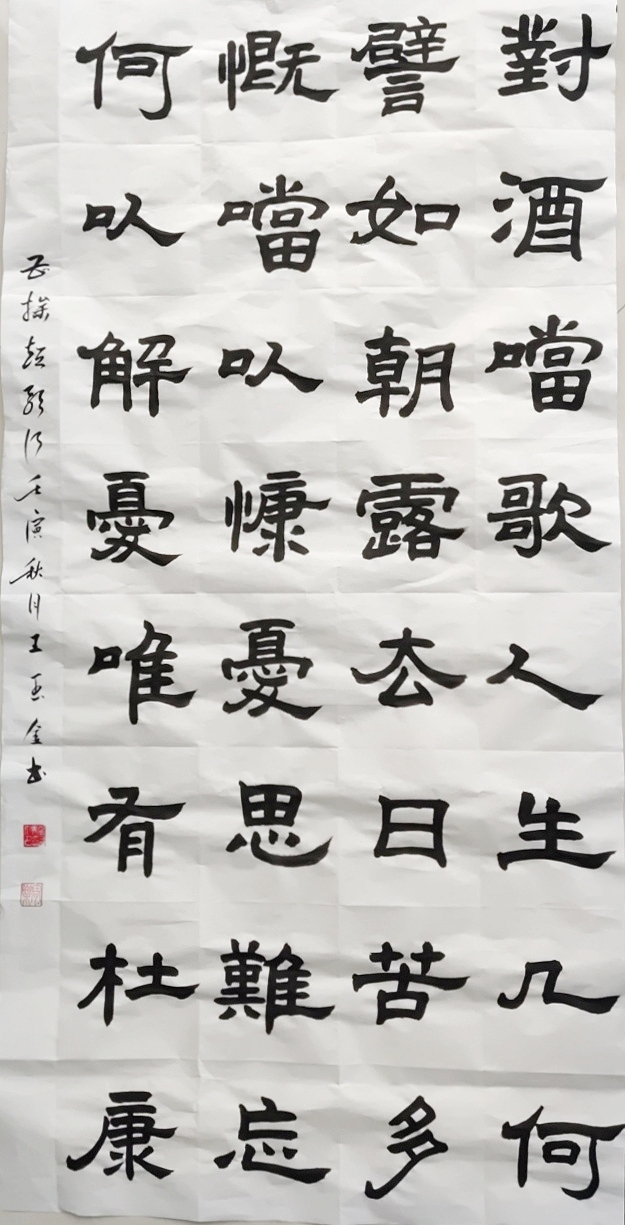 對酒噹歌人生几何
譬如朝露去日苦多
慨噹以慷憂思難忘
何以解憂唯有杜康
曹操短歌行壬寅秋月王玉金书